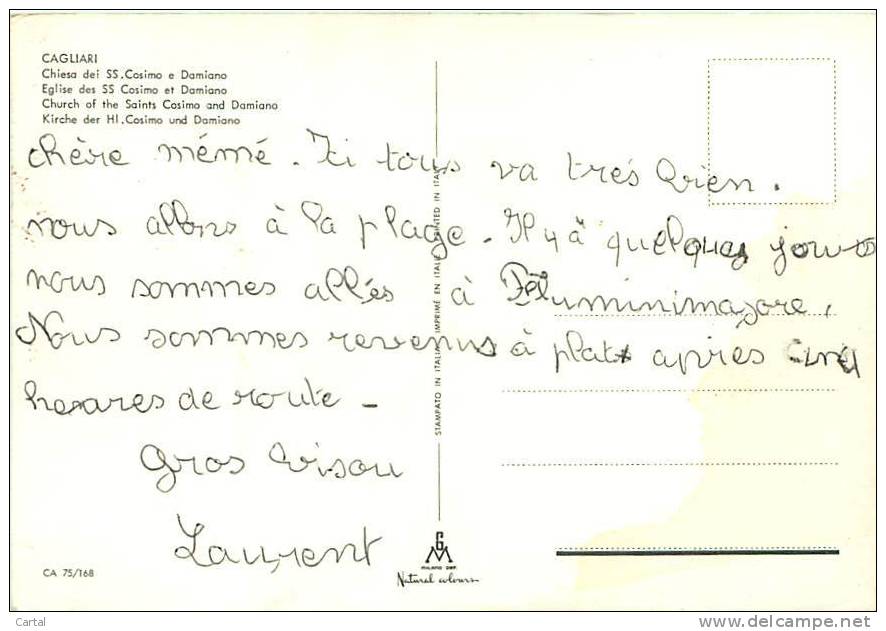 CAGLIARI
Chiesa dei SS.Cosimo e Damiano
Eglise des SS Cosimo et Damiano
Church of the Saints Cosimo and Damiano
Kirche der Hl.Cosimo und Damiano
chère mémé. Ici tous va très bien.
nous allons à la plage. Il y à quelques jours
nous sommes allés à Fluminimagore.
Nous sommes revenus à plat après cinq
heures de route -
Gros bisou
Laurent
STAMPATO IN ITALIA IMPRIMÉ EN ITALIE PRINTED IN ITALY
GM
MILANO DEP.
Natural colours
CA 75/168
Cartal
www.delcampe.net